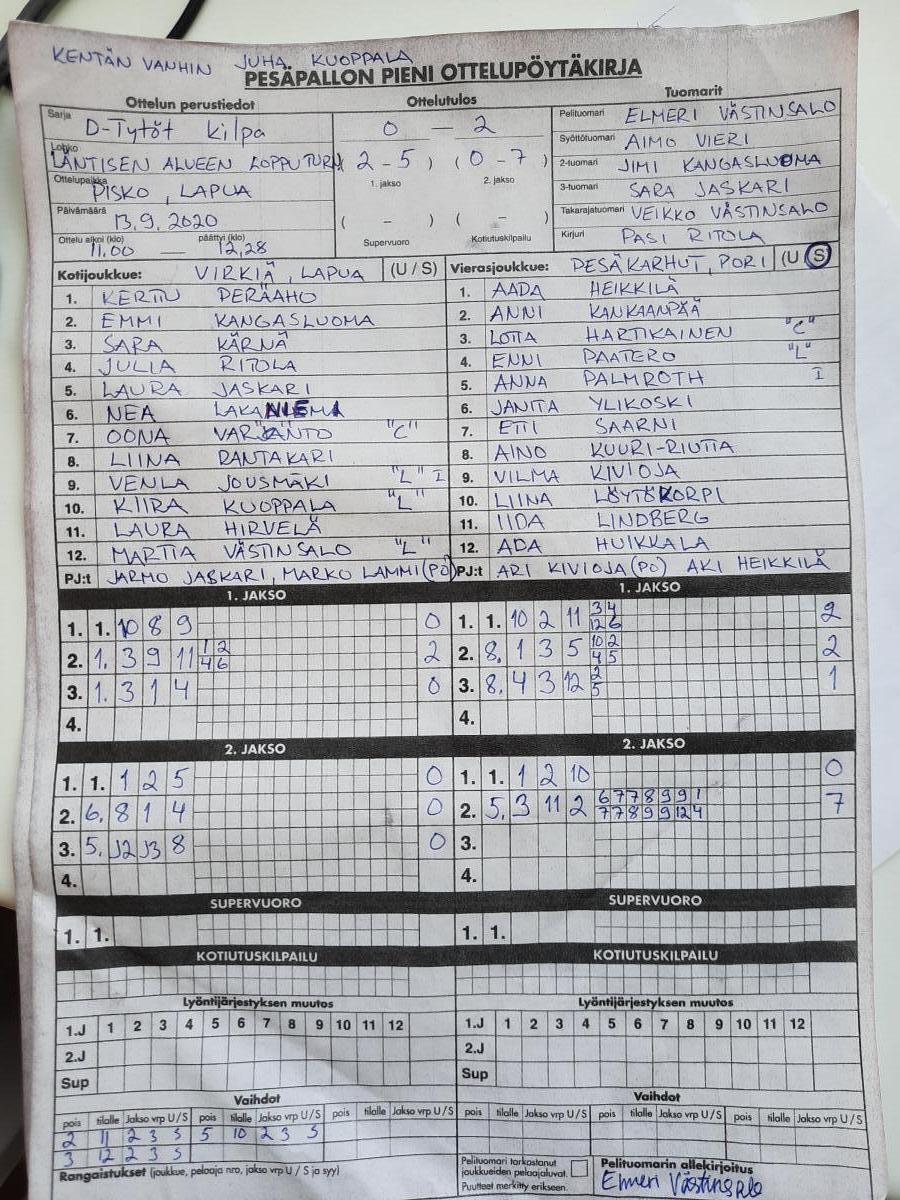 KENTÄN VANHIN JUHA KUOPPALA
PESÄPALLON PIENI OTTELUPÖYTÄKIRJA
Ottelun perustiedot Ottelutulos Tuomarit
Sarja D-Tytöt kilpa 0 — 2 Pelituomari ELMERI VÄSTINSALO
Lohko LÄNTISEN ALUEEN LOPPUTURN ( 2 - 5 ) ( 0 - 7 ) Syöttötuomari AIMO VIERI
1. jakso 2. jakso 2-tuomari JIMI KANGASLUOMA
Ottelupaikka PISKO, LAPUA 3-tuomari SARA JASKARI
Päivämäärä 13.9.2020 ( - ) ( - ) Takarajatuomari VEIKKO VÄSTINSALO
Ottelu alkoi (klo) 11.00 — päättyi (klo) 12.28 Supervuoro Kotiutuskilpailu Kirjuri PASI RITOLA
Kotijoukkue: VIRKIÄ, LAPUA (U / S) Vierasjoukkue: PESÄKARHUT, PORI (U / S)
1. KERTTU PERÄAHO 1. AADA HEIKKILÄ
2. EMMI KANGASLUOMA 2. ANNI KANKAANPÄÄ
3. SARA KÄRNÄ 3. LOTTA HARTIKAINEN "C"
4. JULIA RITOLA 4. ENNI PAATERO "L"
5. LAURA JASKARI 5. ANNA PALMROTH I
6. NEA 6. JANITA YLIKOSKI
7. OONA "C" 7. ETTI SAARNI
8. LIINA RANTAKARI 8. AINO KUURI-RIUTTA
9. VENLA JOUSMÄKI "L" I 9. VILMA KIVIOJA
10. KIIRA KUOPPALA "L" 10. LIINA LÖYTÖKORPI
11. LAURA HIRVELÄ 11. IIDA LINDBERG
12. MARTTA VÄSTINSALO "L" 12. ADA HUIKKALA
PJ:t JARMO JASKARI, MARKO LAMMI (PÖ) PJ:t ARI KIVIOJA (PÖ) AKI HEIKKILÄ
1. JAKSO 1. JAKSO
1. 1. 10 8 9 0 1. 1. 10 2 11 3 4 2
12 6
2. 1. 3 9 11 1 2 2 2. 8. 1 3 5 10 2 2
4 6 4 5
3. 1. 3 1 4 0 3. 8. 4 3 12 2 1
5
4. 4.
2. JAKSO 2. JAKSO
1. 1. 1 2 5 0 1. 1. 1 2 10 0
2. 6. 8 1 4 0 2. 5. 3 11 2 6 7 7 8 9 9 1 7
7 7 8 9 9 12 4
3. 5. J2 J3 8 0 3.
4. 4.
SUPERVUORO SUPERVUORO
1. 1. 1. 1.
KOTIUTUSKILPAILU KOTIUTUSKILPAILU
Lyöntijärjestyksen muutos Lyöntijärjestyksen muutos
1.J 1 2 3 4 5 6 7 8 9 10 11 12 1.J 1 2 3 4 5 6 7 8 9 10 11 12
2.J 2.J
Sup Sup
Vaihdot Vaihdot
pois tilalle Jakso vrp U / S pois tilalle Jakso vrp U / S pois tilalle Jakso vrp U / S pois tilalle Jakso vrp U / S pois tilalle Jakso vrp U / S pois tilalle Jakso vrp U / S
2 11 2 3 S 5 10 2 3 S
3 12 2 3 S
Rangaistukset (joukkue, pelaaja nro, jakso vrp U / S ja syy) Pelituomari tarkastanut joukkueiden pelaajaluvat. Pelituomarin allekirjoitus
Puutteet merkitty erikseen. Elmeri Västinsalo